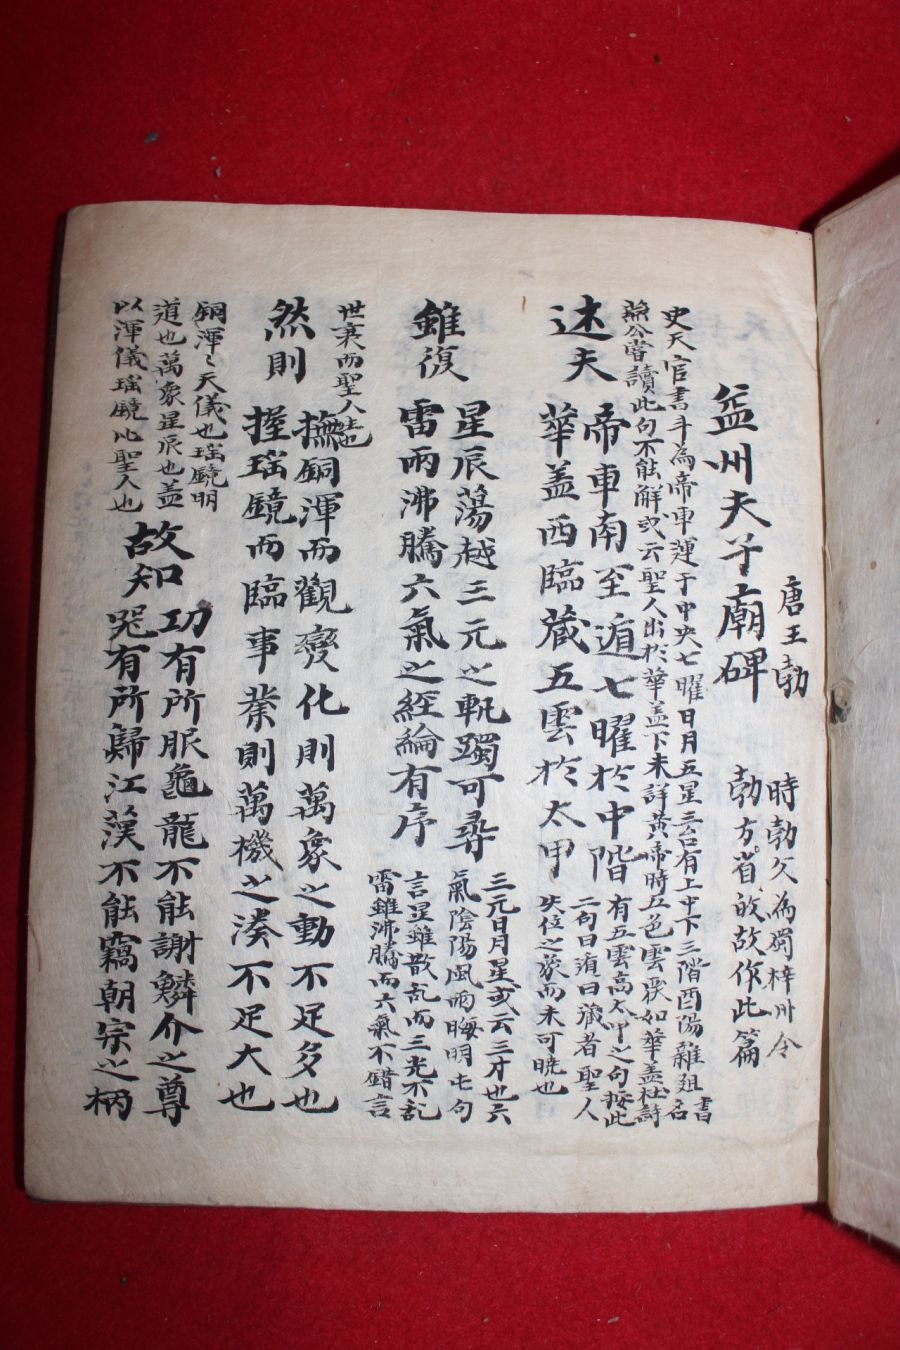 益州夫子廟碑
唐王勃
時勃父為蜀梓州令
勃方省故作此篇
史天官書斗為帝車運于中央七曜日月五星三台有上中下三階酉陽雜俎書名
燕公嘗讀此句不能解或云聖人出於華盖下未詳黃帝時五色雲如華盖杜詩
述夫
帝車南至遁七曜於中階
華盖西臨藏五雲於太甲
有五雲高太甲之句按此
二句曰遁曰藏者聖人
失位之歲而未可曉也
雖復
星辰蕩越三元之軌躅可尋
雷雨沸騰六氣之經綸有序
三元日月星或云三才也六
氣陰陽風雨晦明也句
言星雖散乱而三光不乱
雷雖沸騰而六氣不錯言
世衰而聖人生也
然則
撫銅渾而觀變化則萬象之動不足多也
握瑤鏡而臨事業則萬機之湊不足大也
銅渾〻天儀也瑤鏡明
道也萬象星辰也盖
以渾儀瑤鏡比聖人也
故知
功有所服龜龍不能謝鱗介之尊
器有所歸江漢不能竊朝宗之柄